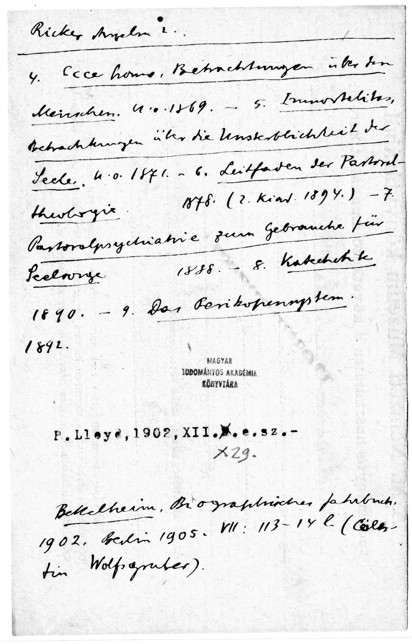 Ricker Anselm 2.
4. Ecce homo, Betrachtungen über den
Menschen. U.o. 1869. – 5. Immortalitas,
Betrachtungen über die Unsterblichkeit der
Seele. U.o. 1871. – 6. Leitfaden der Pastoral-
theologie. 1878. (2. kiad. 1894.) – 7.
Pastoralpsychiatrie zum Gebrauche für
Seelsorge 1888. – 8. Katechetik
1890. – 9. Das Perikopensystem.
1892.
MAGYAR
TUDOMÁNYOS AKADÉMIA
KÖNYVTÁRA
P.Lloyd,1902,XII. .e.sz.-
X29.
Bettelheim, Biographisches Jahrbuch.
1902. Berlin 1905. VII: 113–14 l. (Cöles-
tin Wolfsgruber).